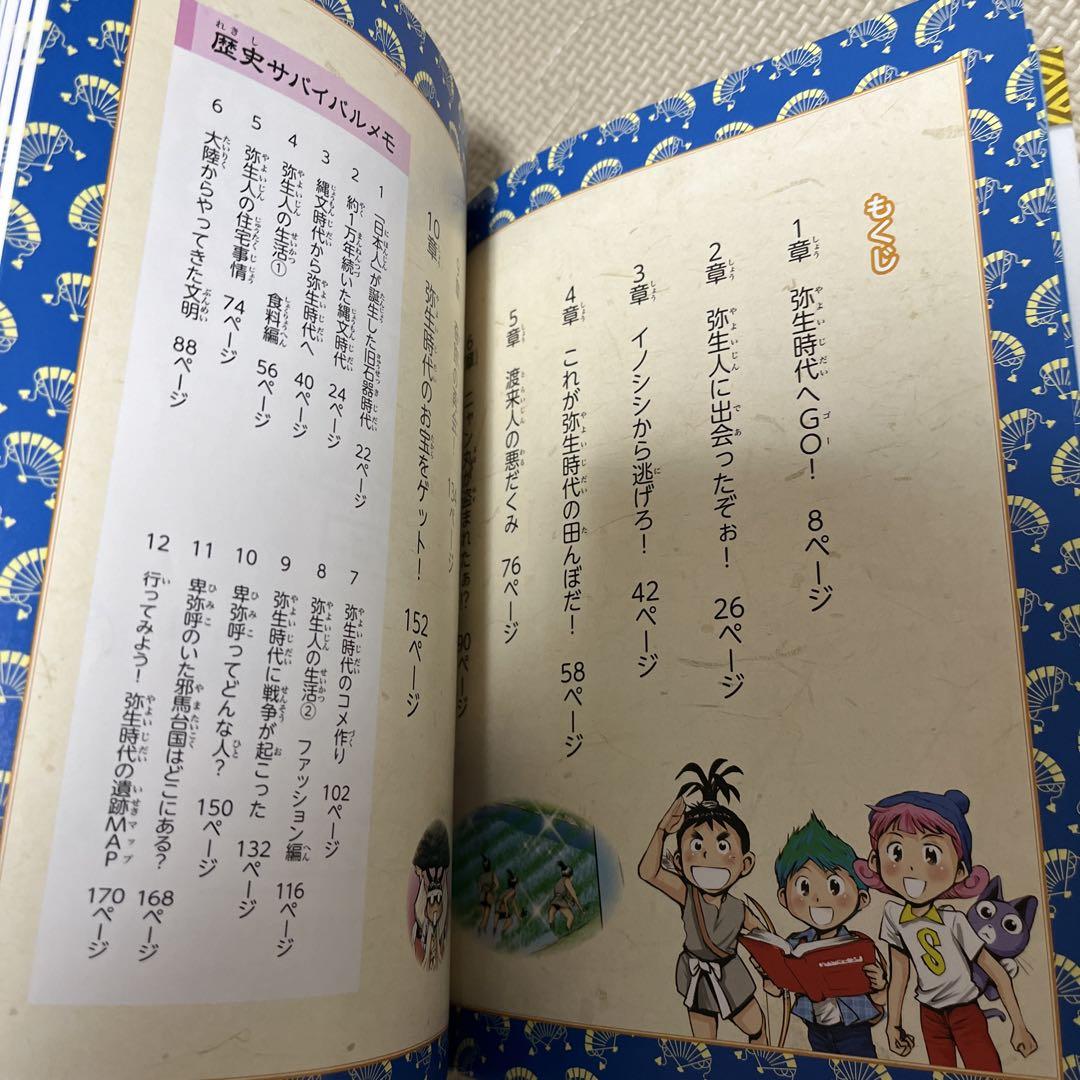 もくじ
1章 弥生時代へGO! 8ページ
2章 弥生人に出会ったぞぉ! 26ページ
3章 イノシシから逃げろ! 42ページ
4章 これが弥生時代の田んぼだ! 58ページ
5章 渡来人の悪だくみ 76ページ
ニャン丸が盗まれたぁ? 90ページ
134ページ
10章 弥生時代のお宝をゲット! 152ページ
歴史サバイバルメモ
1 「日本人」が誕生した旧石器時代 22ページ
2 約1万年続いた縄文時代 24ページ
3 縄文時代から弥生時代へ 40ページ
4 弥生人の生活① 食料編 56ページ
5 弥生人の住宅事情 74ページ
6 大陸からやってきた文明 88ページ
7 弥生時代のコメ作り 102ページ
8 弥生人の生活② ファッション編 116ページ
9 弥生時代に戦争が起こった 132ページ
10 卑弥呼ってどんな人? 150ページ
11 卑弥呼のいた邪馬台国はどこにある? 168ページ
12 行ってみよう! 弥生時代の遺跡MAP 170ページ
S